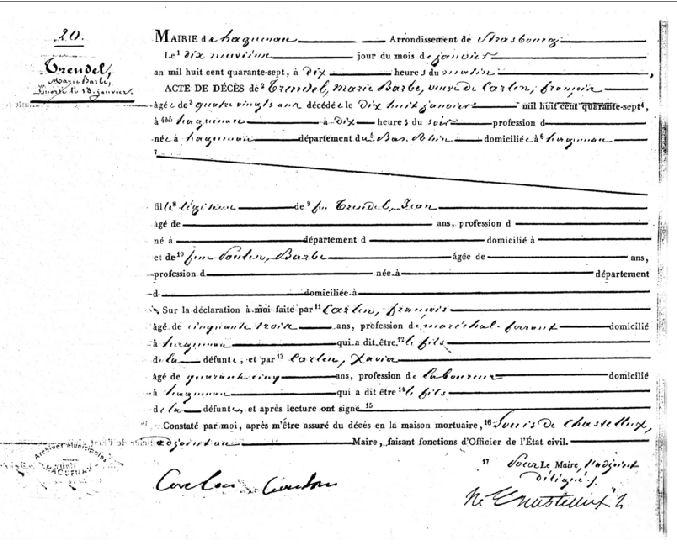 20.
Trendel,
Marie Barbe,
Morte le 18 janvier.
MAIRIE de haguenau Arrondissement de Strasbourg
Le dix neuvième jour du mois de janvier
an mil huit cent quarante-sept, à dix heures du matin,
ACTE DE DÉCÈS de Trendel, Marie Barbe, veuve de Carlen, françois
âgée de quatrevingts ans décédée le dix huit janvier mil huit cent quarante-sept,
à haguenau à dix heures du soir profession d
née à haguenau département du Bas Rhin domiciliée à haguenau
fille légitime de feu Trendel, Jean
âgé de ans, profession d
né à département d domicilié à
et de feue Barbe âgée de ans,
profession d née à département
d domiciliée à
Sur la déclaration à moi faite par Carlen, françois
âgé de cinquante trois ans, profession de maréchal-ferrant domicilié
à haguenau qui a dit être le fils
de la défunte, et par Carlen, Xavier
âgé de quarante cinq ans, profession de laboureur domicilié
à haguenau qui a dit être le fils
de la défunte, et après lecture ont signé
Constaté par moi, après m'être assuré du décès en la maison mortuaire, Louis de Chastellux,
adjoint au Maire, faisant fonctions d'Officier de l'État civil.
Pour Le Maire, l'adjoint
délégué